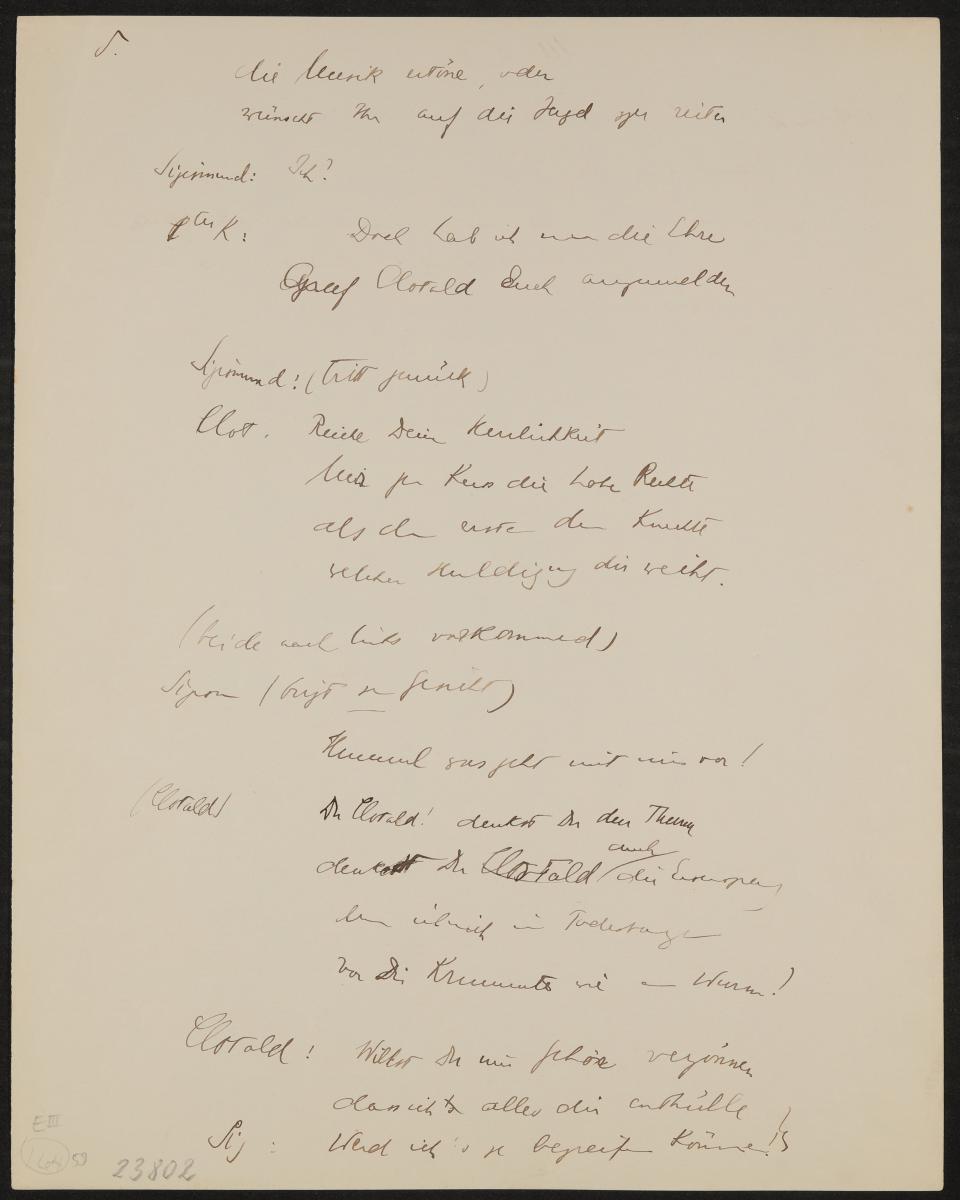 5.
die Musik ertöne, oder
wünscht Ihr auf die Jagd zu reiten
Sigismund: Ich?
1ter K: Doch hab ich nun die Ehre
Graf Clotald Euch anzumelden
Sigismund: (tritt zurück)
Clot. Reiche Deine Herrlichkeit
Mir zum Kuss die hohe Rechte
als dem ersten der Knechte
welcher Huldigung dir weiht.
(beide nach links vorkommend)
Sigism (birgt sn Gesicht)
Himmel was geht mit mir vor!
(Clotald) Du Clotald! denkst Du den Thurm
denkst Du Clotald auch die
in Todesbangen
vor Dir krümmte wie ein Wurm!
Clotald! Willst Du mir Gehör vergönnen
dass ich alles dir enthülle
Sig: Werd ich's je begreifen können!?
E III
59
23802